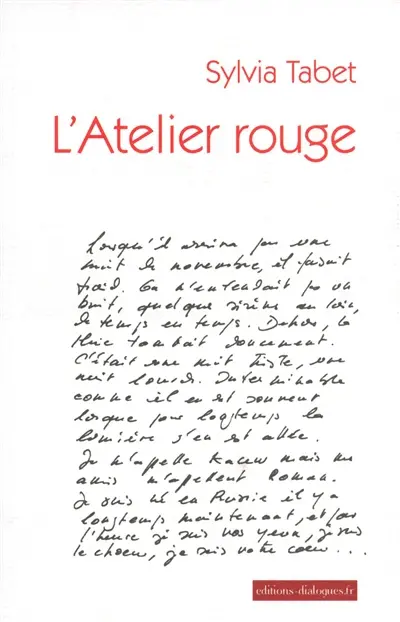 Sylvia Tabet
L'Atelier rouge
Lorsqu'il arriva par une
nuit de novembre, il faisait
froid. On n'entendait pas un
bruit, quelque sirène au loin,
de temps en temps. Dehors, la
pluie tombait doucement.
C'était une nuit triste, une
nuit lourde. Interminable
comme il en est souvent
lorsque pour longtemps la
lumière s'en est allée.
Je m'appelle Kacew mais mes
amis m'appellent Roman.
Je suis né en Russie il y a
longtemps maintenant, et pour
l'heure je suis vos yeux, je suis
le choeur, je suis votre coeur...
editions-dialogues.fr